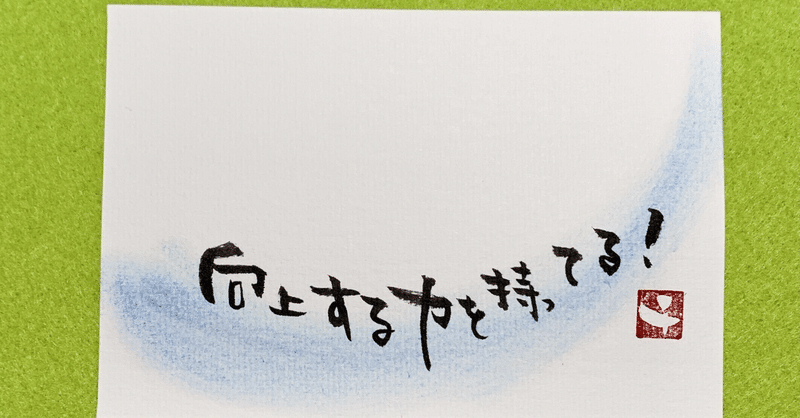 向上する力を持ってる!